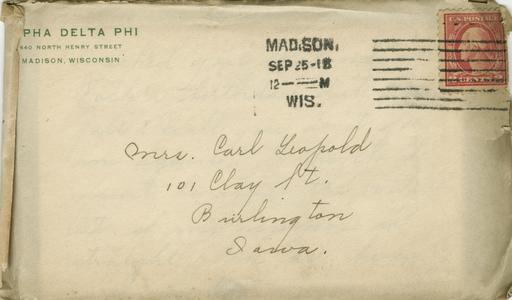 PHA DELTA PHI
640 NORTH HENRY STREET
MADISON, WISCONSIN
MADISON,
SEP 25-18
12 M
WIS.
U.S. POSTAGE
Mrs. Carl Leopold
101 Clay St.
Burlington
Iowa.